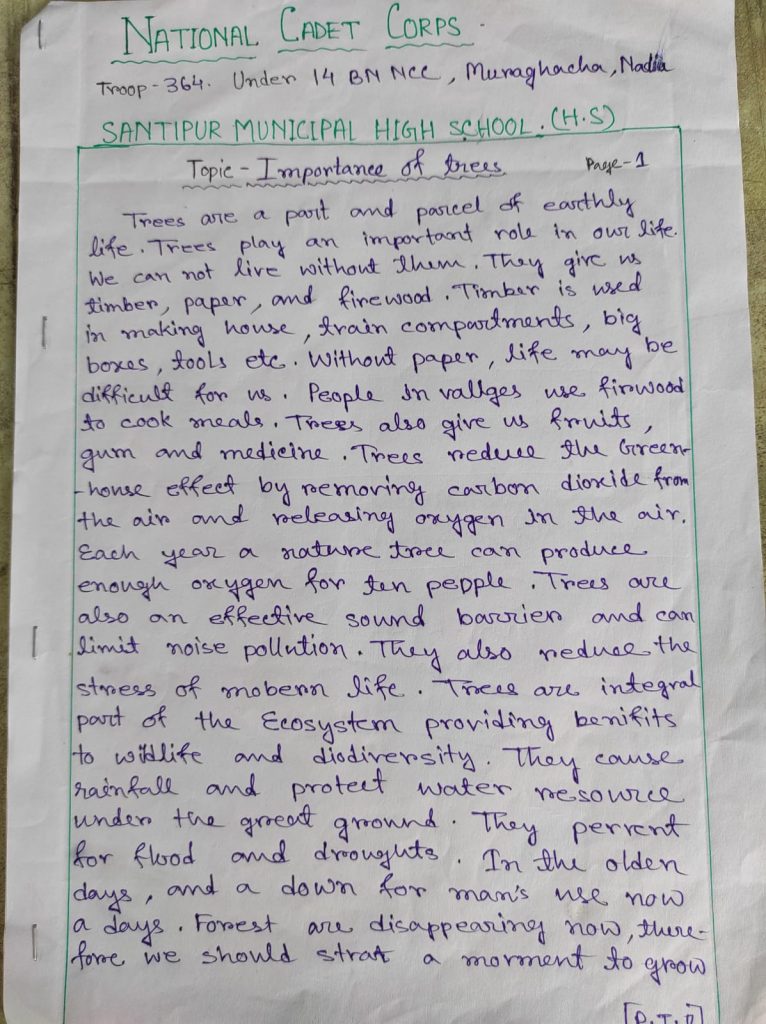 NATIONAL CADET CORPS.
Troop-364. Under 14 BN NCC, Muraghacha, Nadia
SANTIPUR MUNICIPAL HIGH SCHOOL. (H.S)
Topic - Importance of trees Page-1
Trees are a part and parcel of earthly
life. Trees play an important role in our life.
We can not live without them. They give us
timber, paper, and firewood. Timber is used
in making house, train compartments, big
boxes, tools etc. Without paper, life may be
difficult for us. People In vallges use firwood
to cook meals. Trees also give us fruits,
gum and medicine. Trees reduce the Green-
-house effect by removing carbon dioxide from
the air and releasing oxygen In the air.
Each year a nature tree can produce
enough oxygen for ten pepple. Trees are
also an effective sound barrier and can
limit noise pollution. They also reduce the
stress of mobern life. Trees are integral
part of the Ecosystem providing benifits
to wildlife and diodiversity. They cause
rainfall and protect water resource
under the great ground. They perrent
for flood and droughts. In the olden
days, and a down for man's use now
a days. Forrest are disappearing now, there-
fore we should strat a morment to grow
[P.T.O]